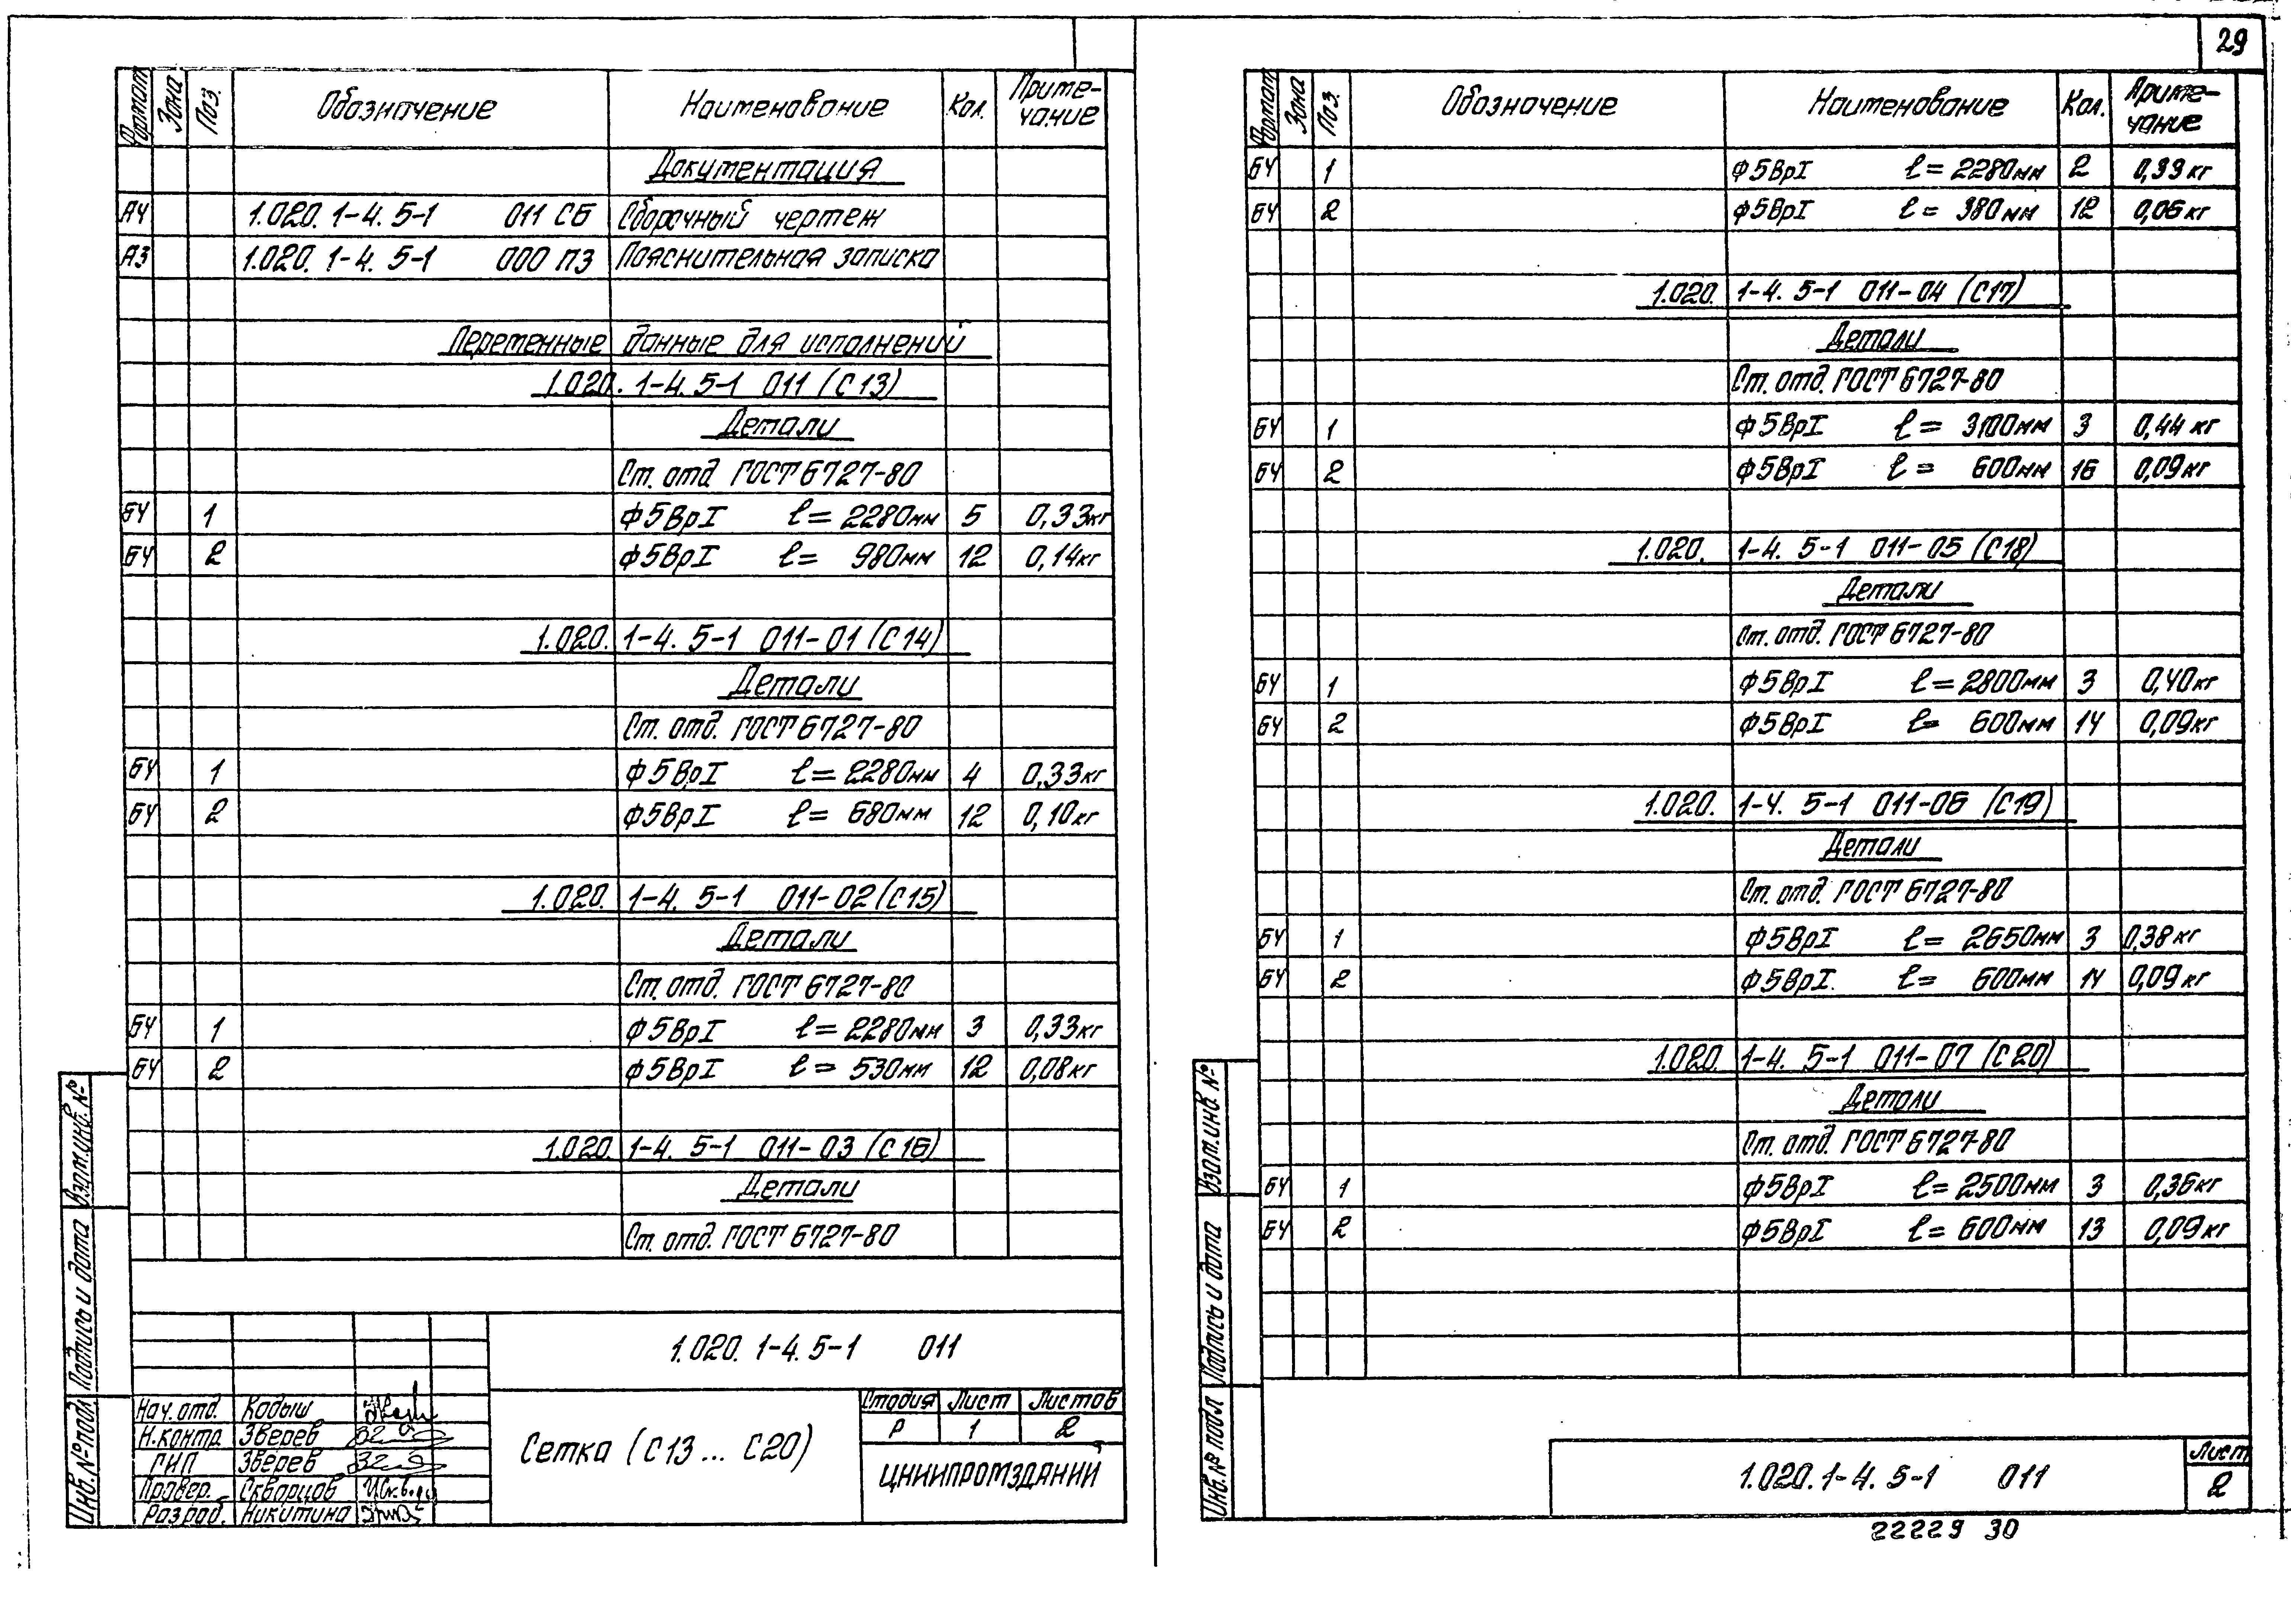 29
Формат Зона Поз. Обозначение Наименование Кол. Приме-
чание
Документация
А4 1.020.1-4.5-1 011 СБ Сборочный чертеж
А3 1.020.1-4.5-1 000 ПЗ Пояснительная записка
Переменные данные для исполнений
1.020.1-4.5-1 011 (С13)
Детали
Ст. отд ГОСТ 6727-80
БЧ 1 Ф5ВрI ℓ=2280мм 5 0,33кг
БЧ 2 Ф5ВрI ℓ= 980мм 12 0,14кг
1.020.1-4.5-1 011-01 (С14)
Детали
Ст. отд. ГОСТ 6727-80
БЧ 1 Ф5ВрI ℓ=2280мм 4 0,33кг
БЧ 2 Ф5ВрI ℓ= 680мм 12 0,10кг
1.020.1-4.5-1 011-02 (С15)
Детали
Ст. отд. ГОСТ 6727-80
БЧ 1 Ф5ВрI ℓ=2280мм 3 0,33кг
БЧ 2 Ф5ВрI ℓ= 530мм 12 0,08кг
1.020.1-4.5-1 011-03 (С16)
Детали
Ст. отд. ГОСТ 6727-80
1.020.1-4.5-1 011
Нач.отд. Кодыш
Н.контр Зверев
ГИП Зверев
Провер. Скворцов
Разраб. Никитина
Сетка (С13... С20)
Стадия Лист Листов
Р 1 2
ЦНИИПРОМЗДАНИЙ
Взам.инв.№
Подпись и дата
Инв.№подл
Формат Зона Поз. Обозначение Наименование Кол. Приме-
чание
БЧ 1 Ф5ВрI ℓ=2280мм 2 0,33кг
БЧ 2 Ф5ВрI ℓ= 380мм 12 0,06кг
1.020.1-4.5-1 011-04 (С17)
Детали
Ст. отд. ГОСТ 6727-80
БЧ 1 Ф5ВрI ℓ= 3100мм 3 0,44кг
БЧ 2 Ф5ВрI ℓ= 600мм 16 0,09кг
1.020.1-4.5-1 011-05 (С18)
Детали
Ст. отд. ГОСТ 6727-80
БЧ 1 Ф5ВрI ℓ=2800мм 3 0,40кг
БЧ 2 Ф5ВрI ℓ= 600мм 14 0,09кг
1.020.1-4.5-1 011-06 (С19)
Детали
Ст. отд. ГОСТ 6727-80
БЧ 1 Ф5ВрI ℓ= 2650мм 3 0,38кг
БЧ 2 Ф5ВрI ℓ= 600мм 14 0,09кг
1.020.1-4.5-1 011-07 (С20)
Детали
Ст. отд. ГОСТ 6727-80
БЧ 1 Ф5ВрI ℓ=2500мм 3 0,36кг
БЧ 2 Ф5ВрI ℓ= 600мм 13 0,09кг
1.020.1-4.5-1 011
Лист
2
Взам.инв.№
Подпись и дата
Инв.№ подл
22229 30